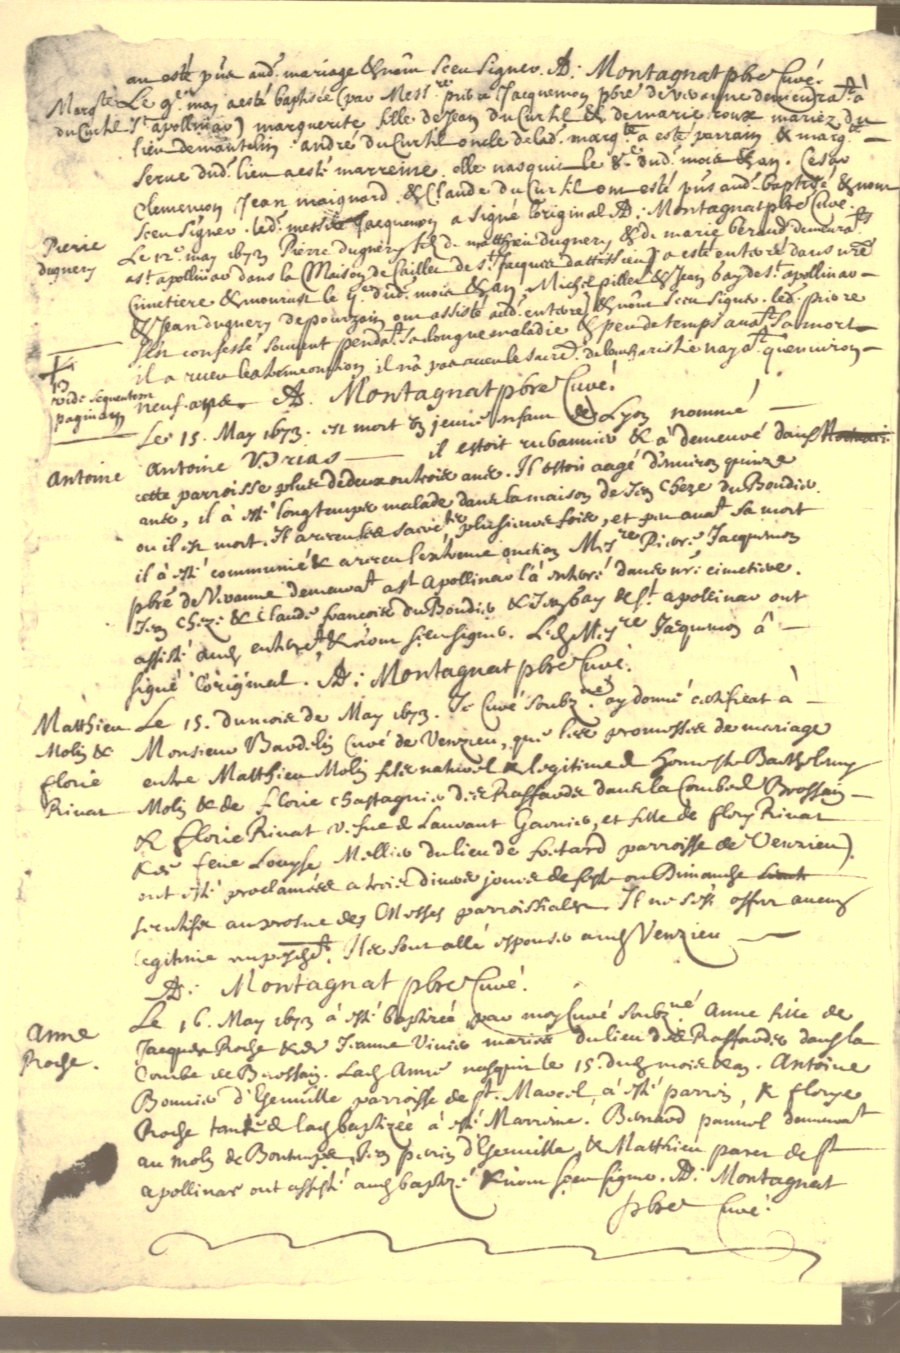 on esté pns aud. mariage & nont sceu signer. A: Montagnat pbre Curé.
Margte du Curtil
Le 9e may a esté baptisée (par Messire Jacquemon pbre de vivanne demeurat à
St apollinar) marguerite fille de Jean du Curtil & de marie roux mariez du
lieu de mantelin. andré du Curtil oncle de lad. margte a esté parrain & margte
serve dud. lieu a esté marreine. elle nasquit le 8e dud. mois & an. Cesar
Clemenson Jean maignard & Claude du Curtil ont esté pns aud. baptisé & nont
sceu signer. led. messire Jacquemon a signé l'original A: Montagnat pbre Curé.
Pierre dugnery
Le 12e may 1673 Pierre dugnery fils d. matthieu dugnery & d. marie beraud demeurats
a st. apollinar dans la Maison de Caillet de St Jacques dattissieu) a esté enterré dans nre
Cimetiere & mourust le 9e dud. mois & an. Michel pillet & Jean bay de st. apollinar
& Jean dugnery de pourzoin ont assisté aud. enterret & nont sceu signer. led. pierre
s'est confessé souvent pendat. sa longue maladie & peu de temps avat. sa mort
il a receu l'extreme onction il n'a pas receu le sacret. de l'eucharistie nayat. qu'environ
vide sequentem paginam
neuf ans. A: Montagnat pbre Curé.
Le 15. May 1673. est mort un jeune enfant de Lyon nommé
Antoine
Antoine Vrias il estoit rubannier & à demeuré dans
cette parroisse plus de deux ou trois ans. Il estoit aagé d'environ quinze
ans, il à esté longtemps malade dans la maison de Jean Cheze du Boudier
ou il est mort. Il a receu les sacrets plusieurs fois, et peu avat sa mort
il à esté communié & a receu l'extreme onction Mesre Pierre Jacquemon
pbre de Vivanne demeurat a st Apollinar l'à enterré dans nre cimetiere.
Jean Cheze & Claude francois du Boudier & Jean bay de St. apollinar ont
assisté aud. enterret & n'ont sceu signer. Led. Mesre Jacquemon à
signé l'original. A: Montagnat pbre Curé.
Matthieu Molin & florie Rivat
Le 15. du mois de May 1673. Je Curé soubzné ay donné certificat à
Monsieur Baudelin Curé de Venzieu, que les promesses de mariage
entre Matthieu Molin fils naturel & legitime d. honneste Barthelemy
Molin & de florie Chastagnier des Raffardes dans la Combe d. Brossain
& florie Rivat vefve d. Laurant Garnier, et fille de flory Rivat
& de feue Louyse Mellier du lieu de fretard parroisse de Venzieu)
ont esté proclamées a trois divers jours de feste ou Dimanche
secutifs au prosne des Messes parroissiales. Il ne s'est offert aucun
legitime empeschet. Ils sont allé espouser aud. Venzieu
A: Montagnat pbre Curé.
Anne Roche.
Le 16. May 1673 à esté baptizée par moy Curé soubzné Anne fille de
Jacques Roche & de Jeanne Vinier mariés du lieu des Raffardes dans la
Combe de Brossain. Lad. Anne nasquit le 15. dud. mois & an. Antoine
Bonnier d'Eseuille parroisse de St. Marcel à esté parrin, & florye
Roche tante d. lad. baptizée à esté Marrine. Bernard pannel demeurat
au molin de Bontemps, Jean perrin d'Eseuille & Matthieu parer de St
apollinar ont assisté aud. baptizé & n'ont sceu signer. A: Montagnat
pbre Curé.